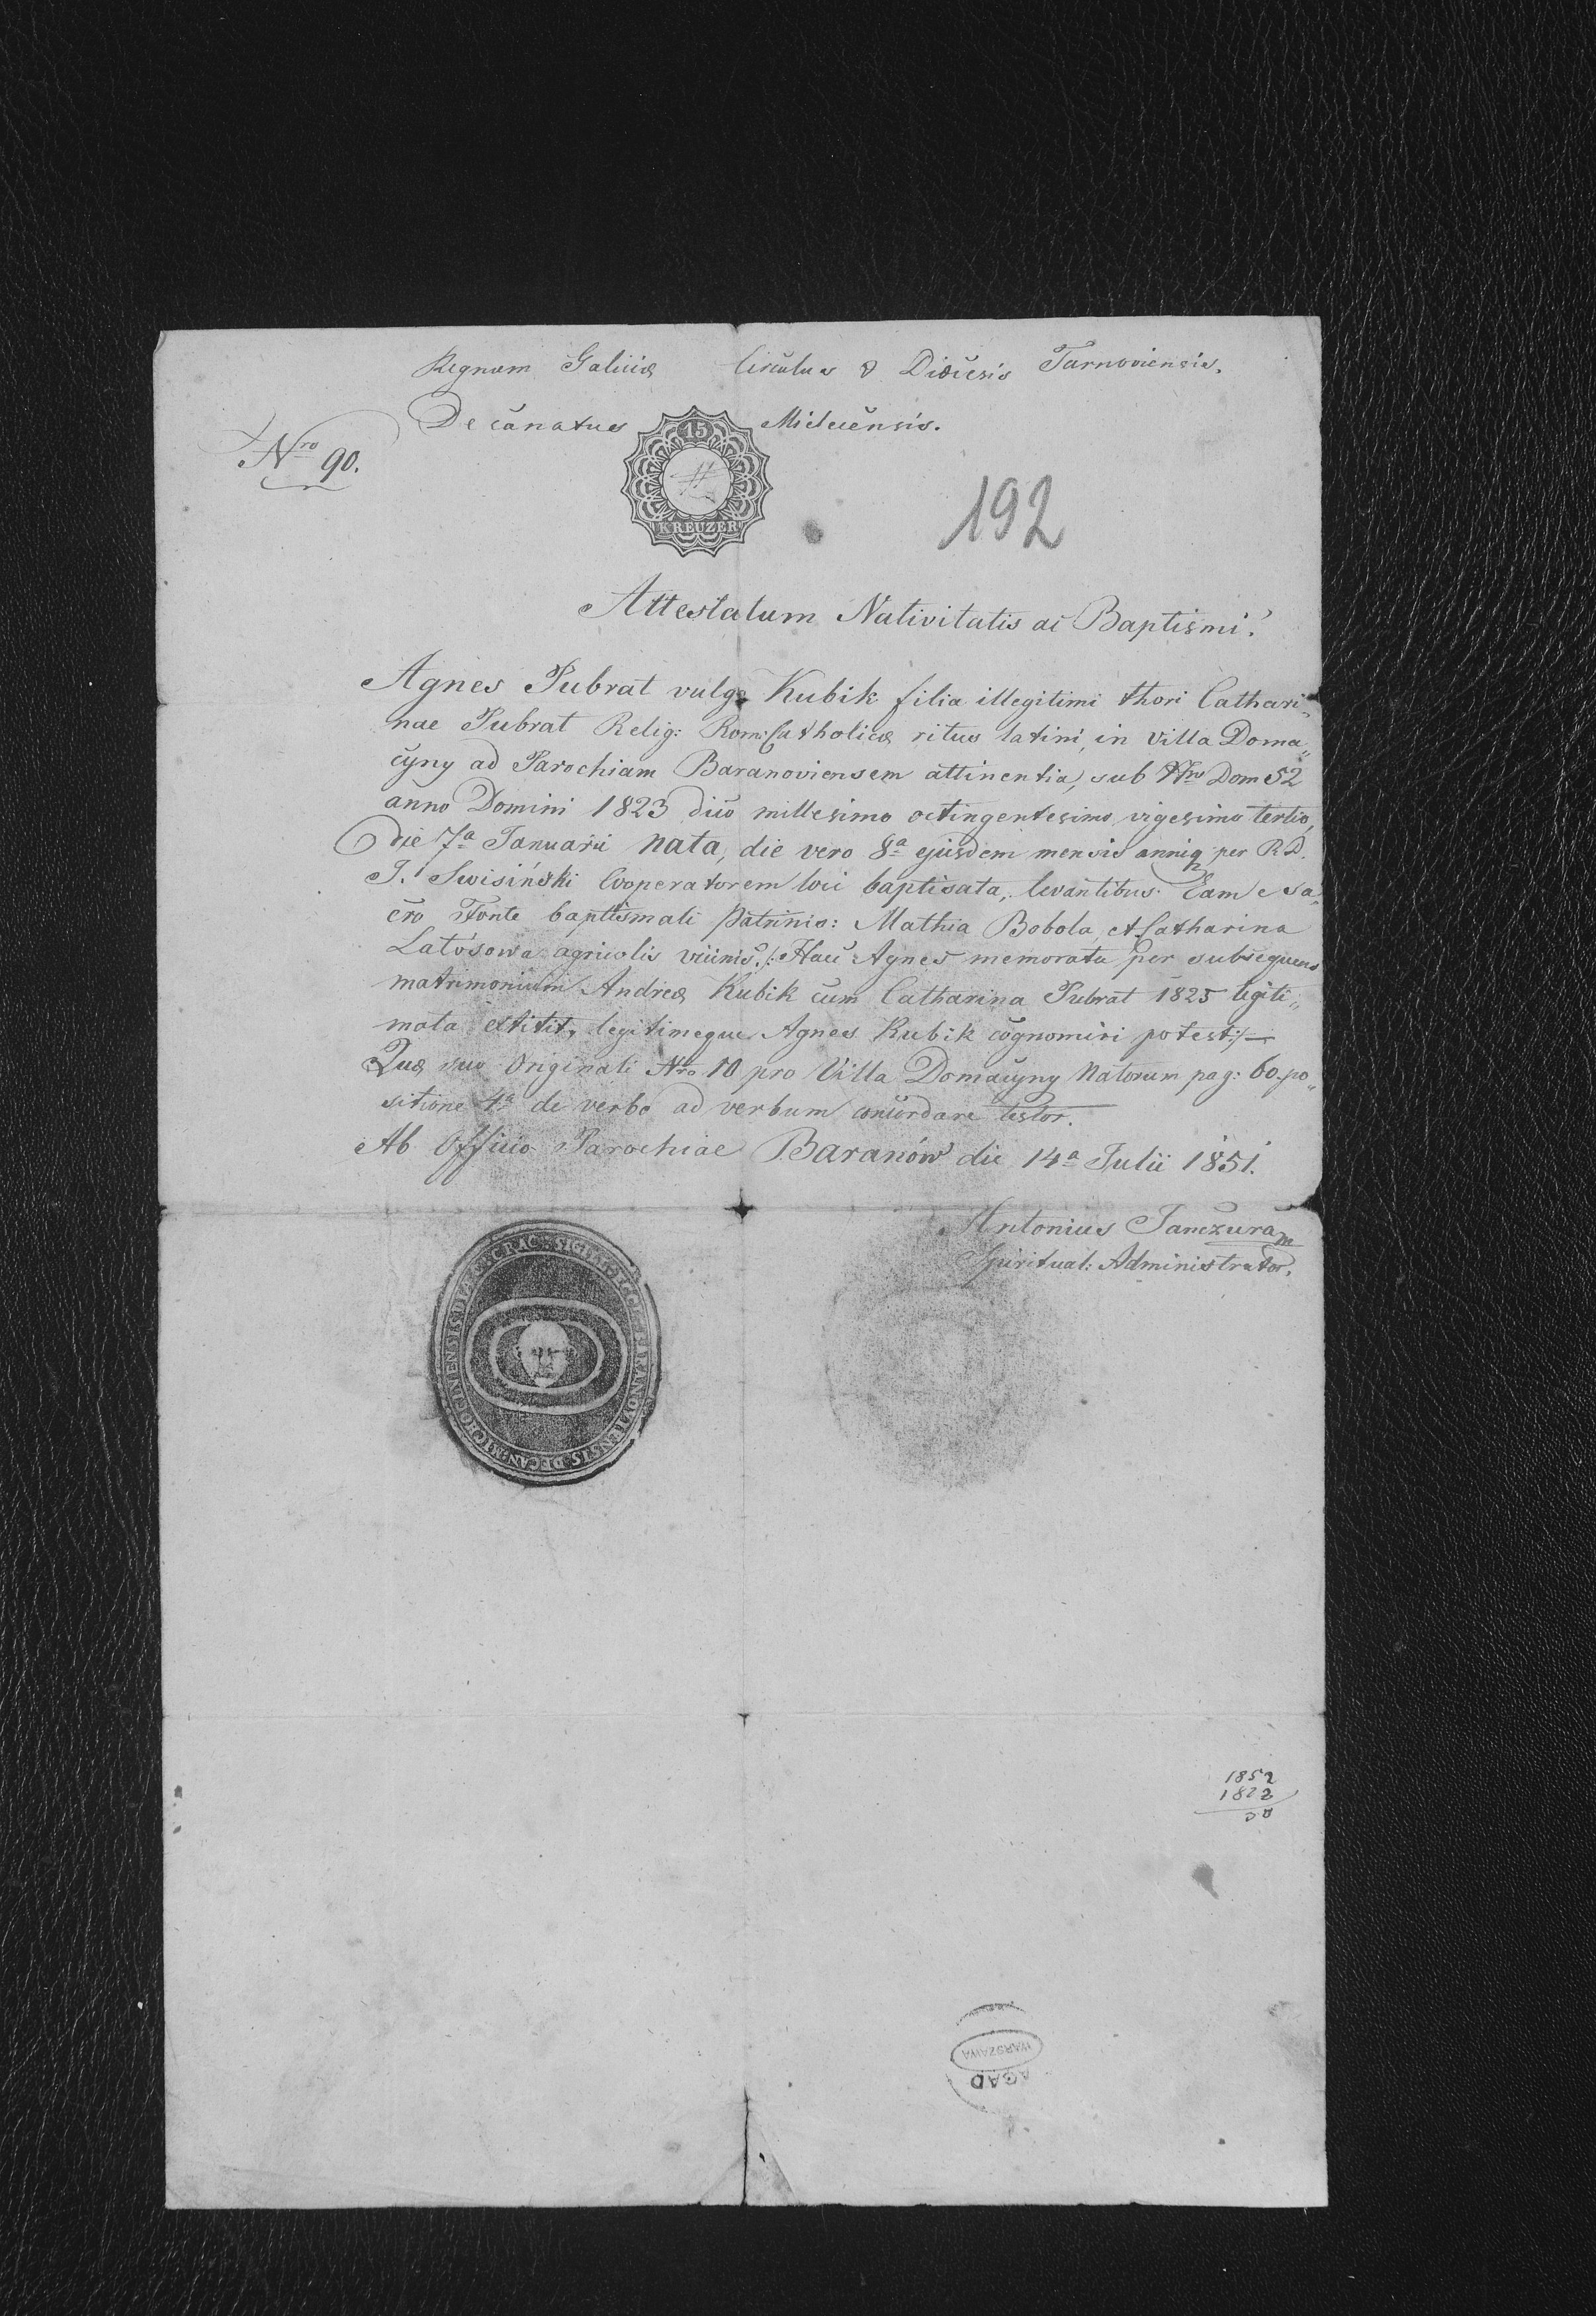 Regnum Galiciæ Circulus & Diœcesis Tarnoviensis.
Decanatus Mielecensis.
Nro 90.
15
KREUZER
192
Attestatum Nativitatis ac Baptismi.
Agnes Pubrat vulgo Kubik filia illegitimi thori Cathari„
nae Pubrat Relig: Rom: Catholicæ ritus latini, in Villa Doma„
cyny ad Parochiam Baranoviensem attinentia, sub Nro Dom 52
anno Domini 1823 dico millesimo octingentesimo, vigesimo tertio,
die 7ª Januarii nata, die vero 8ª ejusdem mensis anniq per R.D.
J. Swisiński Cooperatorem loci baptisata, levantibus Eam e sa„
cro Fonte baptismali Patrinis: Mathia Bobola et Catharina
Latosowa agricolis vicinis. /: Haec Agnes memorata per subsequens
matrimonium Andreæ Kubik cum Catharina Pubrat 1825 legiti„
mata extitit, legitimeque Agnes Kubik cognomiri potest :/—
Quæ suo Originali Nro 10 pro Villa Domacyny Natorum pag: 60. po„
sitione 4ª de verbo ad verbum concordare testor.
Ab Officio Parochiae Baranów die 14ª Julii 1851.
Antonius Janczura
Spiritual: Administrator.
SIGIL ECCL BARANOVIENSIS DECAN MICHOCINENSIS DIÆC CRAC
1852
1822
30
WARSZAWA
AGAD